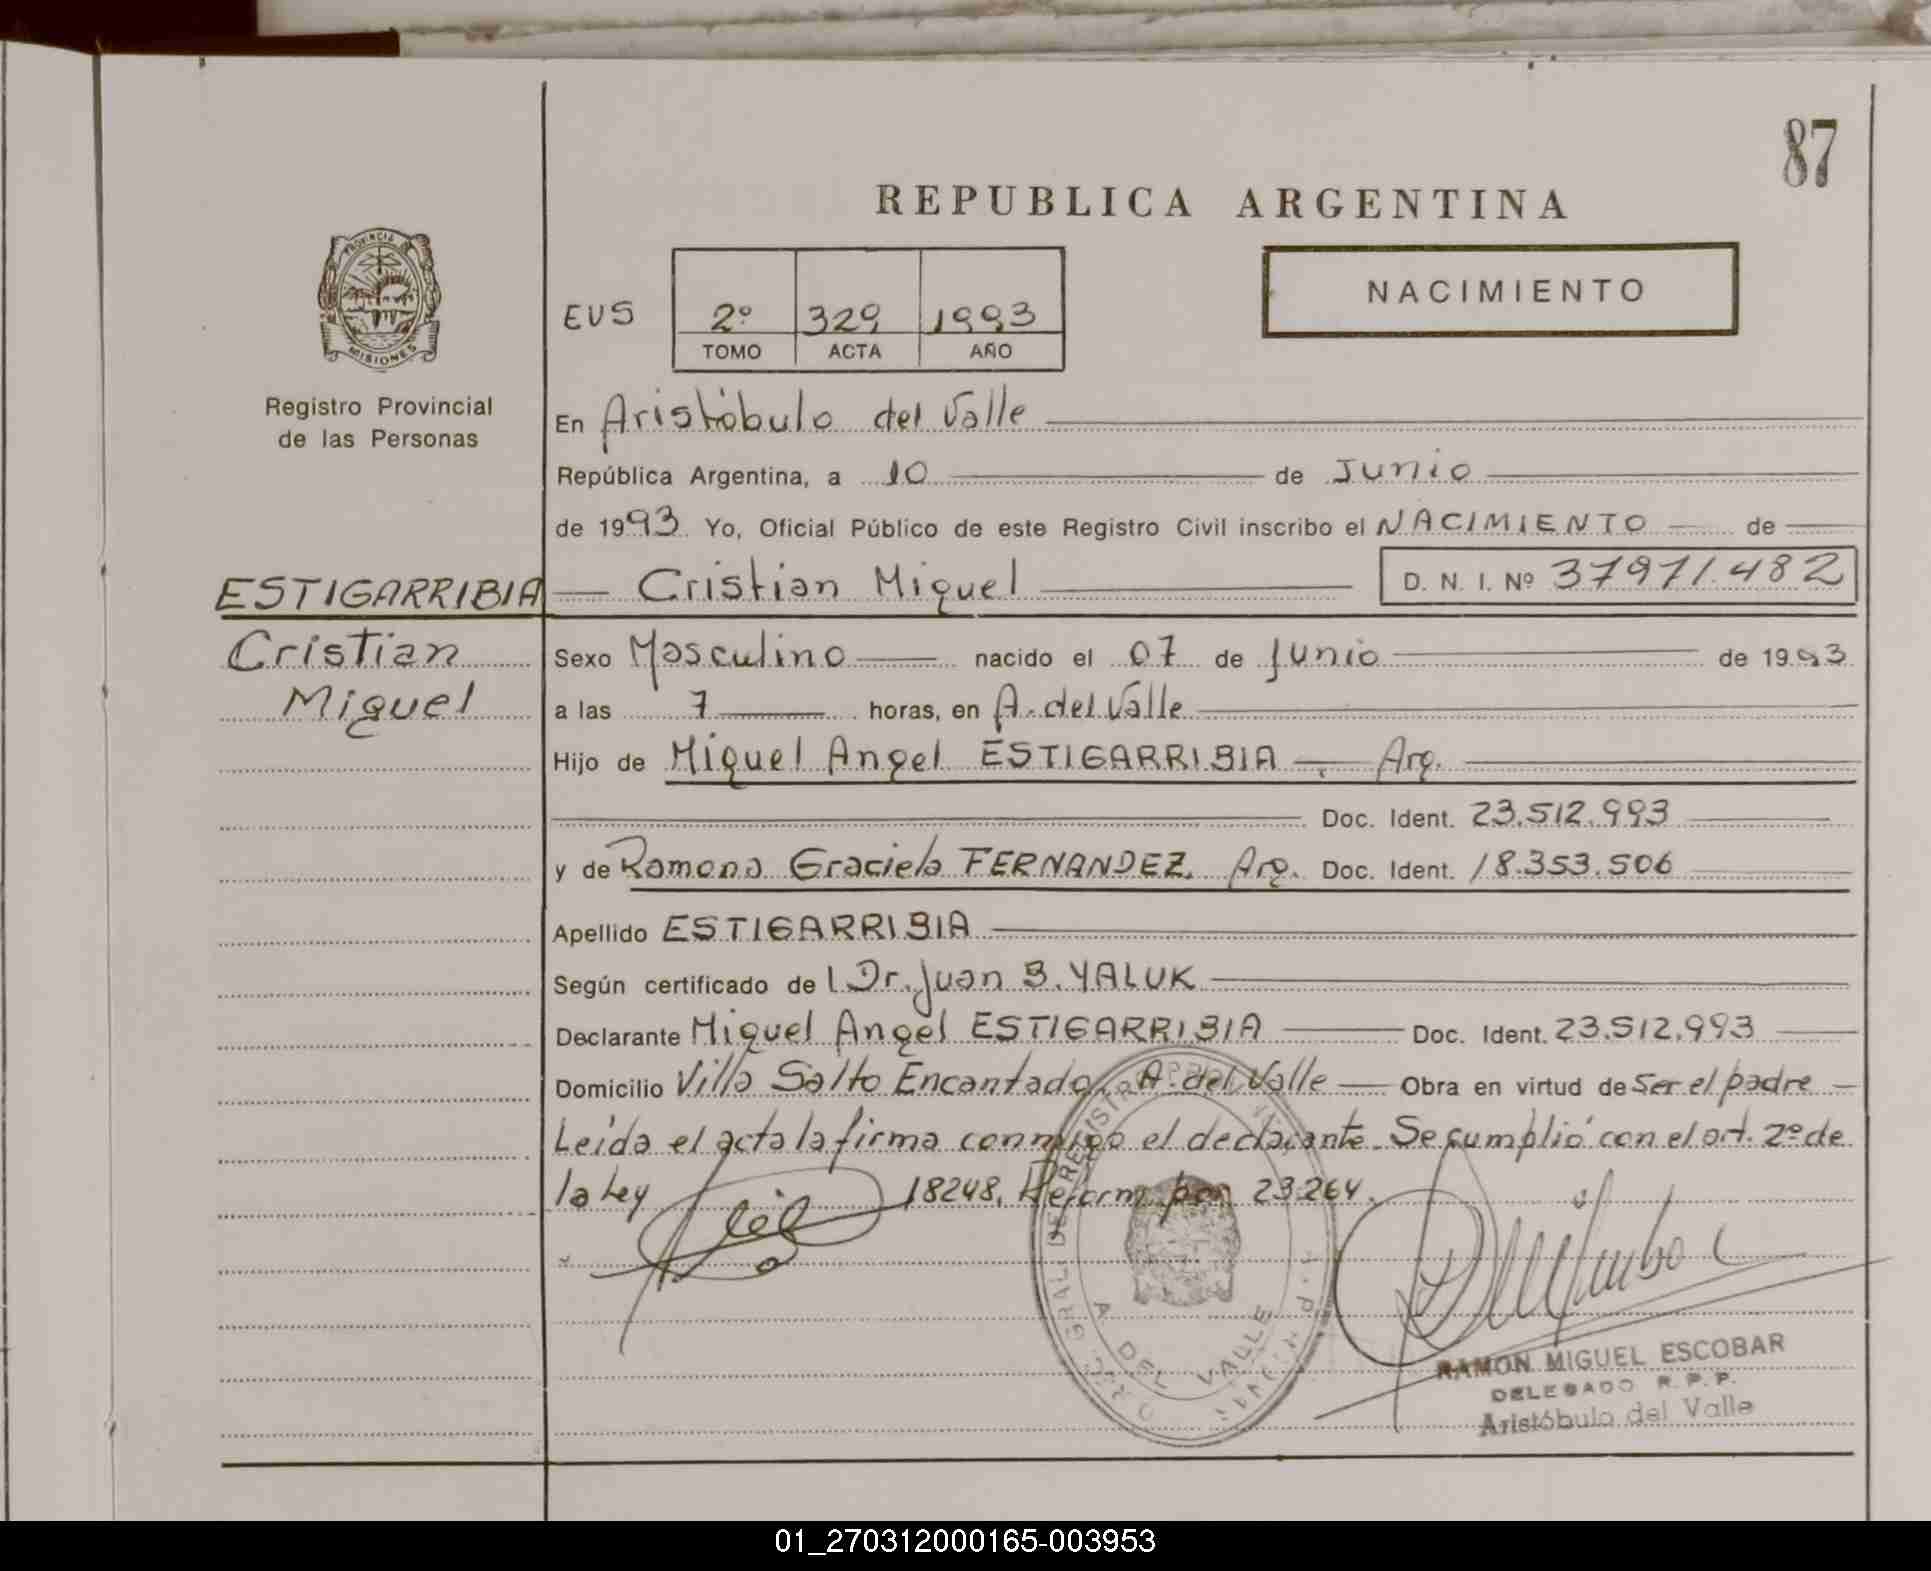 87
REPUBLICA ARGENTINA
PROVINCIA DE
MISIONES
Registro Provincial
de las Personas
NACIMIENTO
EVS 2º 329 1993
TOMO ACTA AÑO
En Aristóbulo del Valle
República Argentina, a 10 de Junio
de 1993 Yo, Oficial Público de este Registro Civil inscribo el NACIMIENTO de
ESTIGARRIBIA Cristian Miguel D. N. I. Nº 37971.482
Cristian Sexo Masculino nacido el 07 de Junio de 1993
Miguel a las 7 horas, en A. del Valle
Hijo de Miguel Angel ESTIGARRIBIA - Arg.
Doc. Ident. 23.512.993
y de Ramona Graciela FERNANDEZ. Arg. Doc. Ident. 18.353.506
Apellido ESTIGARRIBIA
Según certificado de l Dr. Juan B. YALUK
Declarante Miguel Angel ESTIGARRIBIA Doc. Ident. 23.512.993
Domicilio Villa Salto Encantado, A. del Valle Obra en virtud de Ser el padre
Leída el acta la firma conmigo el declarante. Se cumplió con el art. 2º de
la Ley 18248, Reform. por 23264.
A DEL VALLE
RAMON MIGUEL ESCOBAR
DELEGADO R. P. P.
Aristóbulo del Valle
01_270312000165-003953